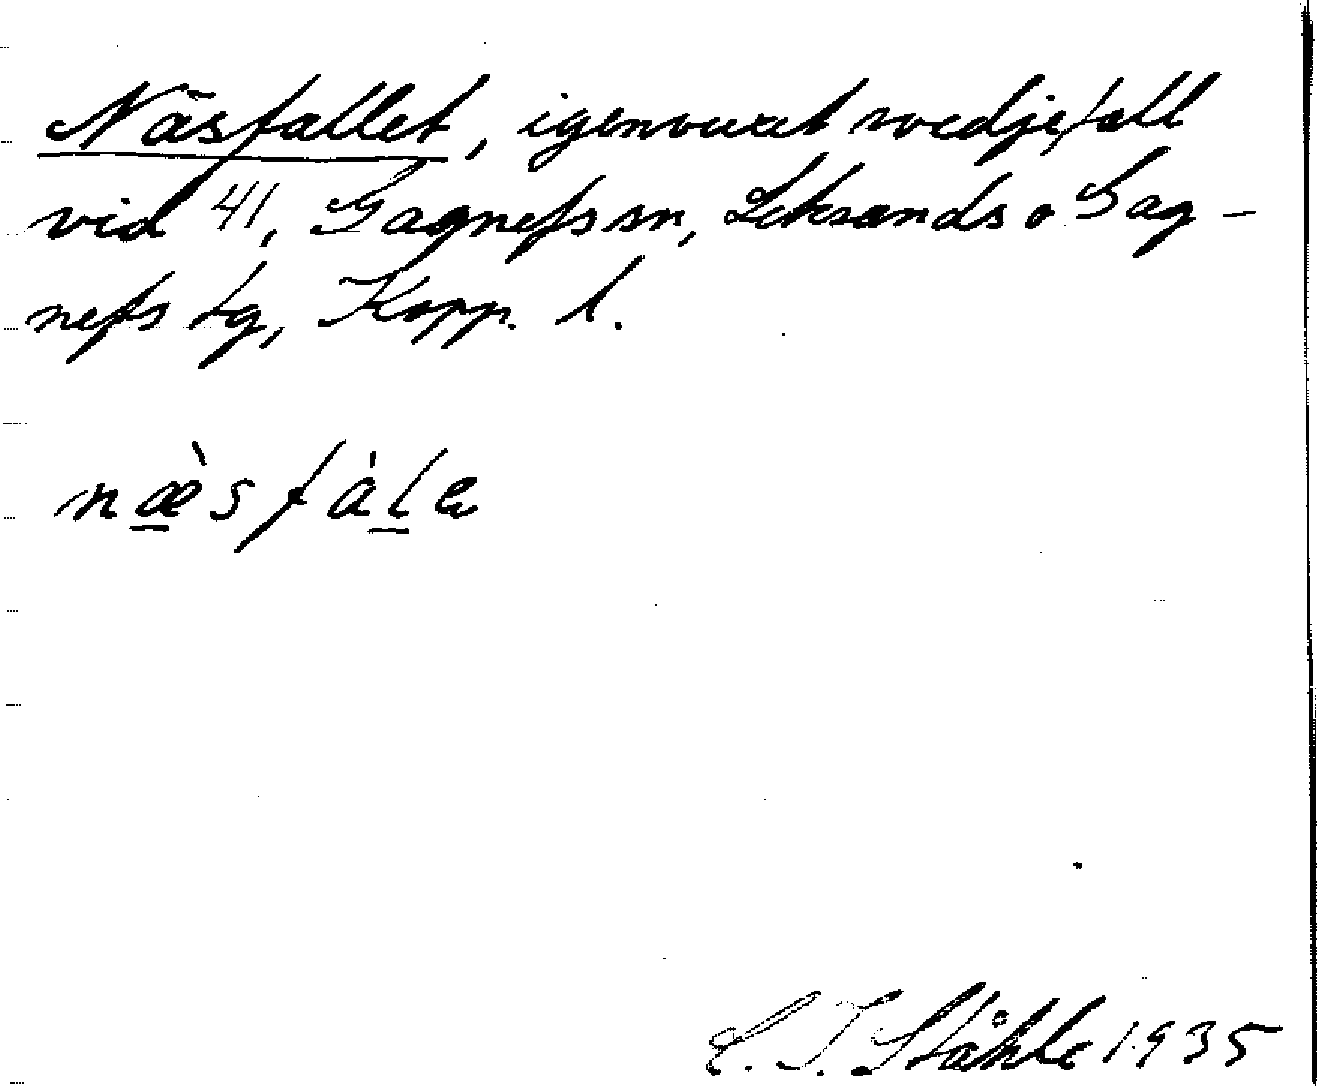 Näsfallet, igenvuxet svedjefall
vid 41, Gagnefs sn, Leksands o Gag-
nefs tg, Kopp. l.
næ̀sfàla
C. I. Ståhle 1935